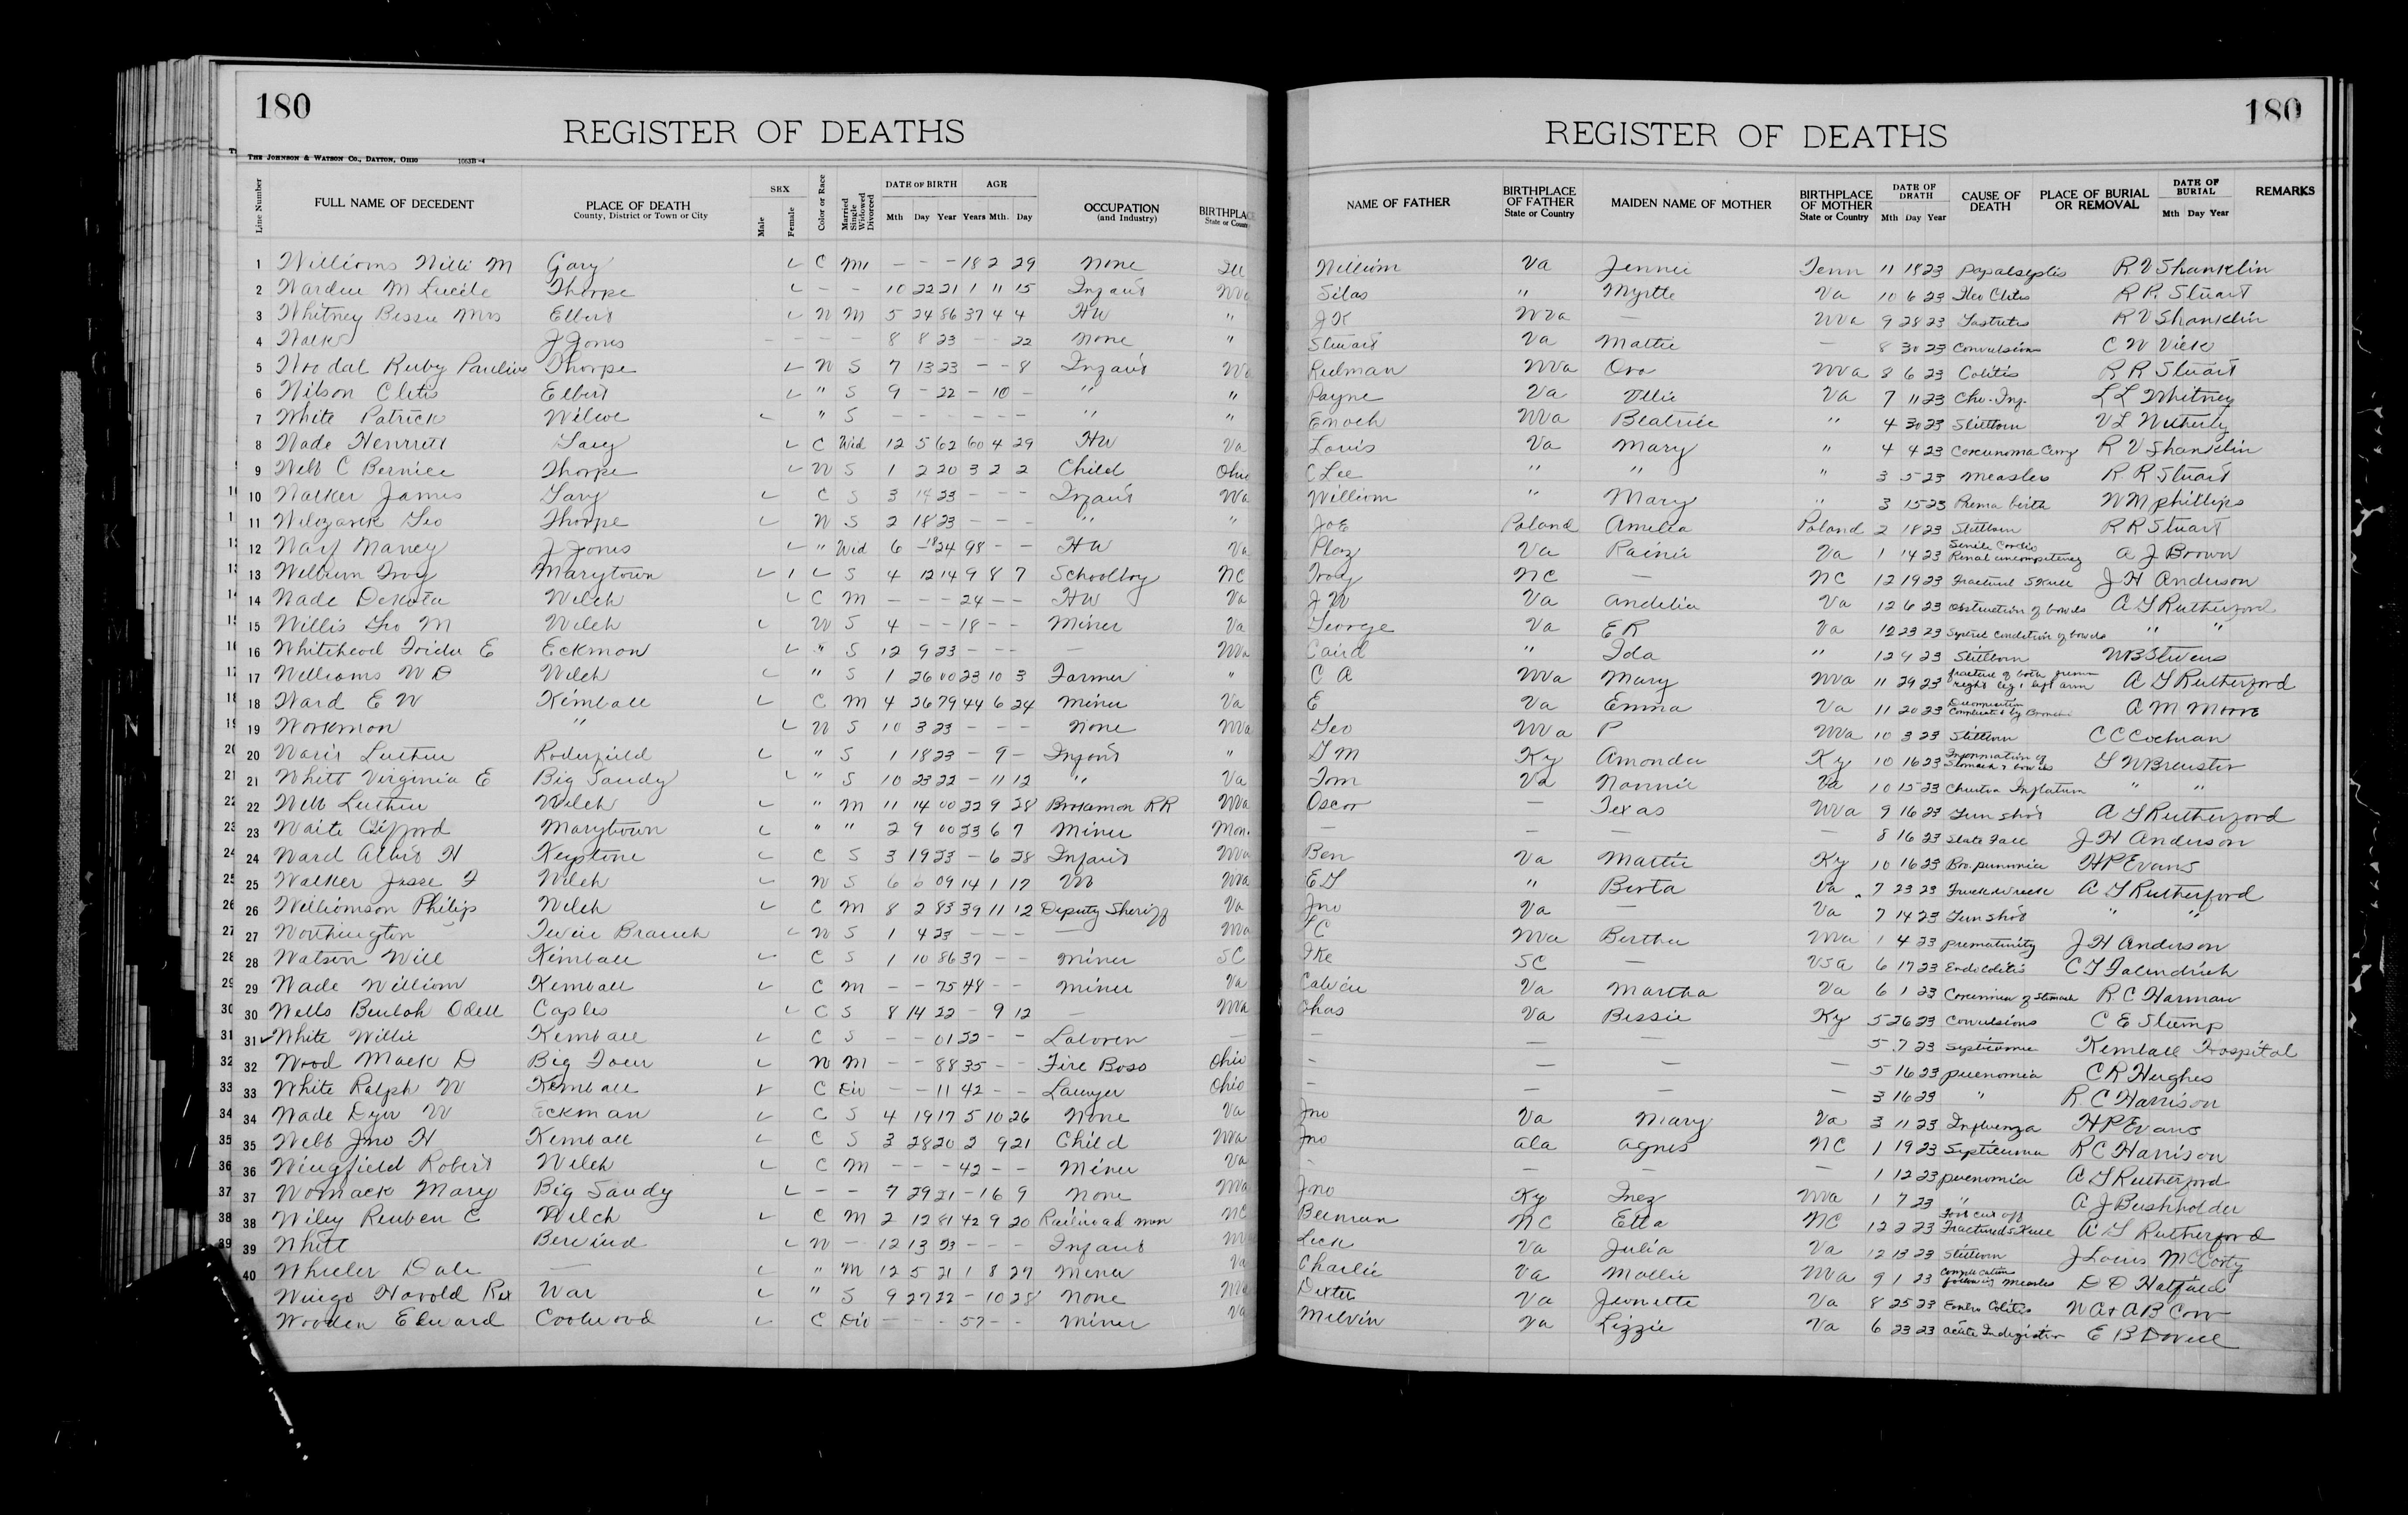 180
REGISTER OF DEATHS
THE JOHNSON & WATSON CO., DAYTON, OHIO 1063B-4
Line Number FULL NAME OF DECEDENT PLACE OF DEATH County, District or Town or City SEX Male Female Color or Race Married Single Widowed Divorced DATE OF BIRTH Mth Day Year AGE Years Mth. Day OCCUPATION (and Industry) BIRTHPLACE State or County
1 Williams Willi M Gary C M - - - 18 2 29 None Ill
2 M Lucile Thorpe - - 10 22 21 1 11 15 Infant WVa
3 Whitney Bessie Mrs Elbert W M 5 24 86 37 4 4 HW "
4 J Jones - - - - 8 8 23 - - 22 None "
5 Woodal Ruby Pauline Thorpe W S 7 13 23 - - 8 Infant WVa
6 Wilson Cletis Elbert " S 9 - 22 - 10 - " "
7 White Patrick Wilcoe " S - - - - - - " "
8 Wade Henrrett Gary C Wid 12 5 62 60 4 29 HW Va
9 Webb C Bernice Thorpe W S 1 2 20 3 2 2 Child Ohio
10 Walker James Gary C S 3 14 23 - - - Infant WVa
11 Geo Thorpe W S 2 18 23 - - - " "
12 Nancy J Jones " Wid 6 - 1824 98 - - HW Va
13 Welburn Troy Marytown S 4 12 14 9 8 7 Schoolboy NC
14 Wade Dekota Welch C M - - - 24 - - HW Va
15 Willis Geo M Welch W S 4 - - 18 - - Miner Va
16 Whitehead E Eckman " S 12 9 23 - - - - WVa
17 Williams W D Welch " S 1 26 00 23 10 3 Farmer "
18 Ward E W Kimball C M 4 26 79 44 6 24 Miner Va
19 Workman " W S 10 3 23 - - - None WVa
20 Luther Roderfield " S 1 18 23 - 9 - Infant "
21 Whitt Virginia E Big Sandy " S 10 23 22 - 11 12 " Va
22 Webb Luther Welch " M 11 14 00 22 9 28 Brakman RR WVa
23 Waite Gifford Marytown " " 2 9 00 23 6 7 Miner Mon.
24 Ward H Keystone C S 3 19 23 - 6 28 Infant WVa
25 Walker Jesse F Welch W S 6 6 09 14 1 17 WVa
26 Williamson Philip Welch C M 8 2 83 39 11 12 Deputy Sheriff Va
27 Worthington Twin Branch W S 1 4 23 - - - - WVa
28 Watson Will Kimball C S 1 10 86 37 - - Miner SC
29 Wade William Kimball C M - - 75 48 - - Miner Va
30 Wells Beulah Odell Caples C S 8 14 22 - 9 12 - WVa
31 White Willie Kimball C S - - 01 22 - - Laborer -
32 Wood Mack D Big Four W M - - 88 35 - - Fire Boss Ohio
33 White Ralph W Kimball C Div - - 11 42 - - Lawyer Ohio
34 Wade Dyer W Eckman C S 4 19 17 5 10 26 None Va
35 Webb Jno H Kimball C S 3 28 20 2 9 21 Child WVa
36 Wingfield Robert Welch C M - - - 42 - - Miner Va
37 Womack Mary Big Sandy - - 7 29 21 - 16 9 None WVa
38 Wiley Reuben C Welch C M 2 12 81 42 9 20 Railroad man NC
39 Whitt Berwind W - 12 13 23 - - - Infant
40 Wheeler Dale - " M 12 5 21 1 8 27 Miner Va
Wingo Harold Rex War " S 9 27 22 - 10 28 None
Wooden Edward Coalwood C Div - - - 57 - - Miner Va
180
REGISTER OF DEATHS
NAME OF FATHER BIRTHPLACE OF FATHER State or Country MAIDEN NAME OF MOTHER BIRTHPLACE OF MOTHER State or Country DATE OF DEATH Mth Day Year CAUSE OF DEATH PLACE OF BURIAL OR REMOVAL DATE OF BURIAL Mth Day Year REMARKS
William Va Jennie Tenn 11 18 23 R V Shanklin
Silas " Myrtle Va 10 6 23 R R Stuart
J K WVa - WVa 9 28 23 R V Shanklin
Stewart Va Mattie - 8 30 23 Convulsions C W Vick
WVa Ora WVa 8 6 23 Colitis R R Stuart
Payne Va Ollie Va 7 11 23 Cho. Inf. L L Whitney
Enoch WVa Beatrice " 4 30 23 Stillborn
Louis Va Mary " 4 4 23 R V Shanklin
C Lee " " " 3 5 23 Measles R R Stuart
William " Mary " 3 15 23 Prema birth W M Phillips
Joe Poland Amelia Poland 2 18 23 Stillborn R R Stuart
Va Va 1 14 23 Senile Renal incompetency A J Brown
Troy NC - NC 12 19 23 Fractured Skull J H Anderson
J W Va Andelia Va 12 6 23 Obstruction of bowels A G Rutherford
George Va E R Va 12 23 23 condition of bowels " "
Caird " Ida " 12 9 23 Stillborn W B Stevens
C A WVa Mary WVa 11 29 23 fracture of both right leg, left arm A G Rutherford
E Va Emma Va 11 20 23 Complicated by A M Moore
Geo WVa P WVa 10 3 23 Stillborn C C Cochran
G M Ky Amanda Ky 10 16 23 Stomach & bowels G W Brewster
Tom Va Nannie Va 10 15 23 " "
Oscar - Texas WVa 9 16 23 Gun shot A G Rutherford
- - - - 8 16 23 Slate Fall J H Anderson
Ben Va Mattie Ky 10 16 23 Bro. pnumonia H P Evans
E G " Berta Va 7 23 23 Truck wreck A G Rutherford
Jno Va - Va 7 14 23 Gun shot " "
Wva Bertha Wva 1 4 23 prematurity J H Anderson
Ike SC - USA 6 17 23 C T
Calvin Va Martha Va 6 1 23 of Stomach R C Harman
Chas Va Bessie Ky 5 26 23 Convulsions C E Stump
- - - - 5 7 23 Kimball Hospital
- - - - 5 16 23 puenomia C R Hughes
- - - - 3 16 23 " R. C Harrison
Jno Va Mary Va 3 11 23 Influenza H P Evans
Jno Ala Agnes NC 1 19 23 R C Harrison
- - - - 1 12 23 puenomia A G Rutherford
Jno Ky Inez Wva 1 7 23 " A J Bushholder
Beeman NC Etta NC 12 2 23 Foot cut off Fractured Skull A G Rutherford
Leck Va Julia Va 12 13 23 Stillborn J Louis McCarty
Charlie Va Mollie WVa 9 1 23 Complication following Measles D D Hatfield
Dexter Va Jeonette Va 8 25 23 Colitis
Melvin Va Lizzie Va 6 23 23 Acute Indigestion